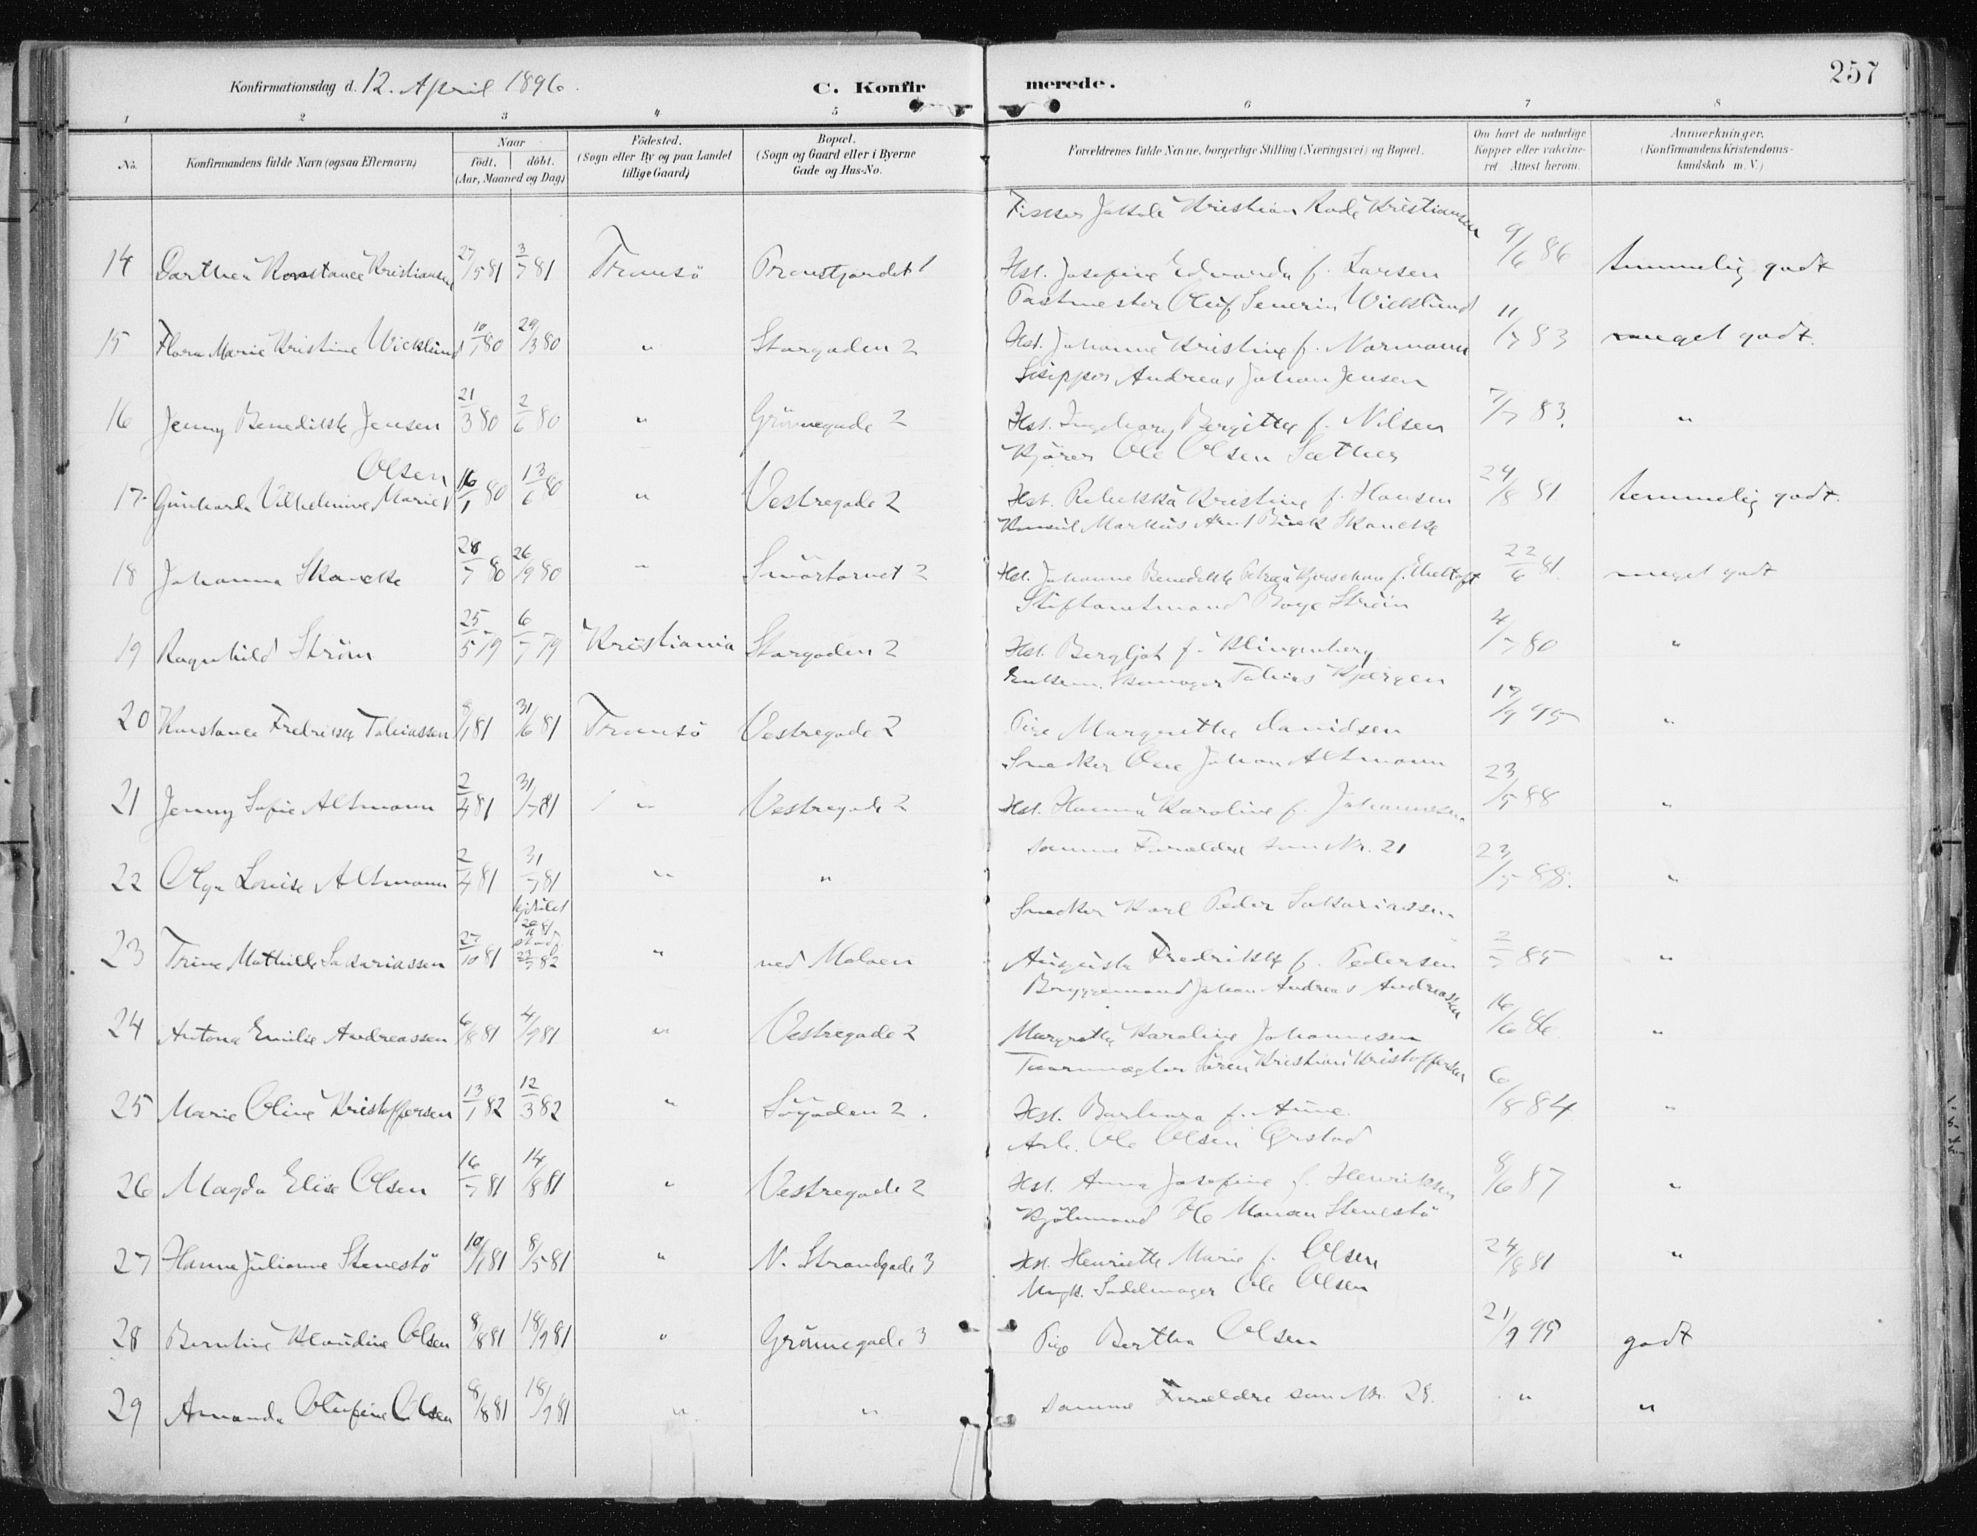 Konfirmationsdag d. 12. April 1896.
C. Konfirmerede.
257
1 2 3 4 5 6 7 8
No.
Konfirmandens fulde Navn (ogsaa Efternavn)
Naar
født. døbt.
(Aar, Maaned og Dag)
Fødested.
(Sogn eller By og paa Landet
tillige Gaard)
Bopæl.
(Sogn og Gaard eller i Byerne
Gade og Hus-No.
Forældrenes fulde Navne, borgerlige Stilling (Næringsvei) og Bopæl.
Om havt de naturlige
Kopper eller vakcine-
ret Attest herom.
Anmærkninger.
(Konfirmandens Kristendoms-
kundskab m. V.)
Kristian Kristiansen
14 Konstance Kristiansen 27/5 81 3/7 81 Tromsö 1 Hst. Josefine Edvarda f. Larsen 9/6 86 temmelig godt
Oluf Severin Wicklund
15 Flora Marie Kristine Wicklund 10/1 80 29/3 80 " Storgaden 2 Hst. Johanne Kristine f. Normann 11/7 83 meget godt.
Andreas Johan Jensen
16 Jenny Benedikte Jensen 21/3 80 2/6 80 " Grönnegade 2 Hst. Ingeborg Bergitte f. Nilsen 7/7 83. "
Kjörer Ole Olsen Sæther
Olsen
17 Vilhelmine Marie 16/1 80 13/6 80 " Vestregade 2 Hst. Rebekka Kristine f. Hansen 24/8 81 temmelig godt.
Konsul Markus Buck Skancke
18 Johanna Skancke 28/7 80 26/9 80 " Smörtorvet 2 Hst. Johanne Benedikte f. Ebeltoft 22/6 81. meget godt
Stiftamtmand Boye Strøm
19 Ragnhild Strøm 25/5 79 6/7 79 Kristiania Storgaden 2 Hst. Bergljot f. Klingenberg 4/7 80 "
Enkem. Skomager Tobias
20 Konstance Fredrikke Tobiassen 31/6 81 Tromsö Vestregade 2 Pige Margrethe Davidsen "
Snedker Johan Altmann
21 Jenny Sofie Altmann 2/4 81 31/7 81 " Vestregade 2 Hst. Hanna Karoline f. Johannesen 23/5 88 "
22 Olga Louise Altmann 2/4 81 31/7 81 " " samme Forældre som Nr. 21 23/5 88. "
Snedker Karl Peder Sakariassen
23 Trine Mathilde Sakariassen 27/10 81 " ved Moloen Augusta Fredrikke f. Pedersen 2/7 85 "
Bryggemand Johan Andreas Andreassen
24 Antona Emilie Andreassen 6/8 81 4/9 81 " Vestregade 2 Margrethe Karoline Johannesen 16/6 86. "
Sören Kristian Kristoffersen
25 Marie Oline Kristoffersen 13/1 82 12/3 82 " Sögaden 2. Hst. Barbara f. Aune. 6/8 84 "
Arb. Ole Olsen Ørstad
26 Magda Elise Olsen 16/7 81 14/8 81 " Vestregade 2 Hst. Anna Josefine f. Henriksen 8/6 87 "
Stenestö
27 Hanna Julianne Stenestö 10/1 81 8/5 81 " N. Strandgade 3 Hst. Henriette Marie f. Olsen 24/8 81 "
Ungk. Sadelmager Ole Olsen
28 Berntine Klaudine Olsen 8/8 81 18/9 81 " Grönnegade 3 Pige Bertha Olsen 21/9 95 godt
29 Amanda Olufine Olsen 8/8 81 18/9 81 " " samme Forældre som Nr. 28. " "